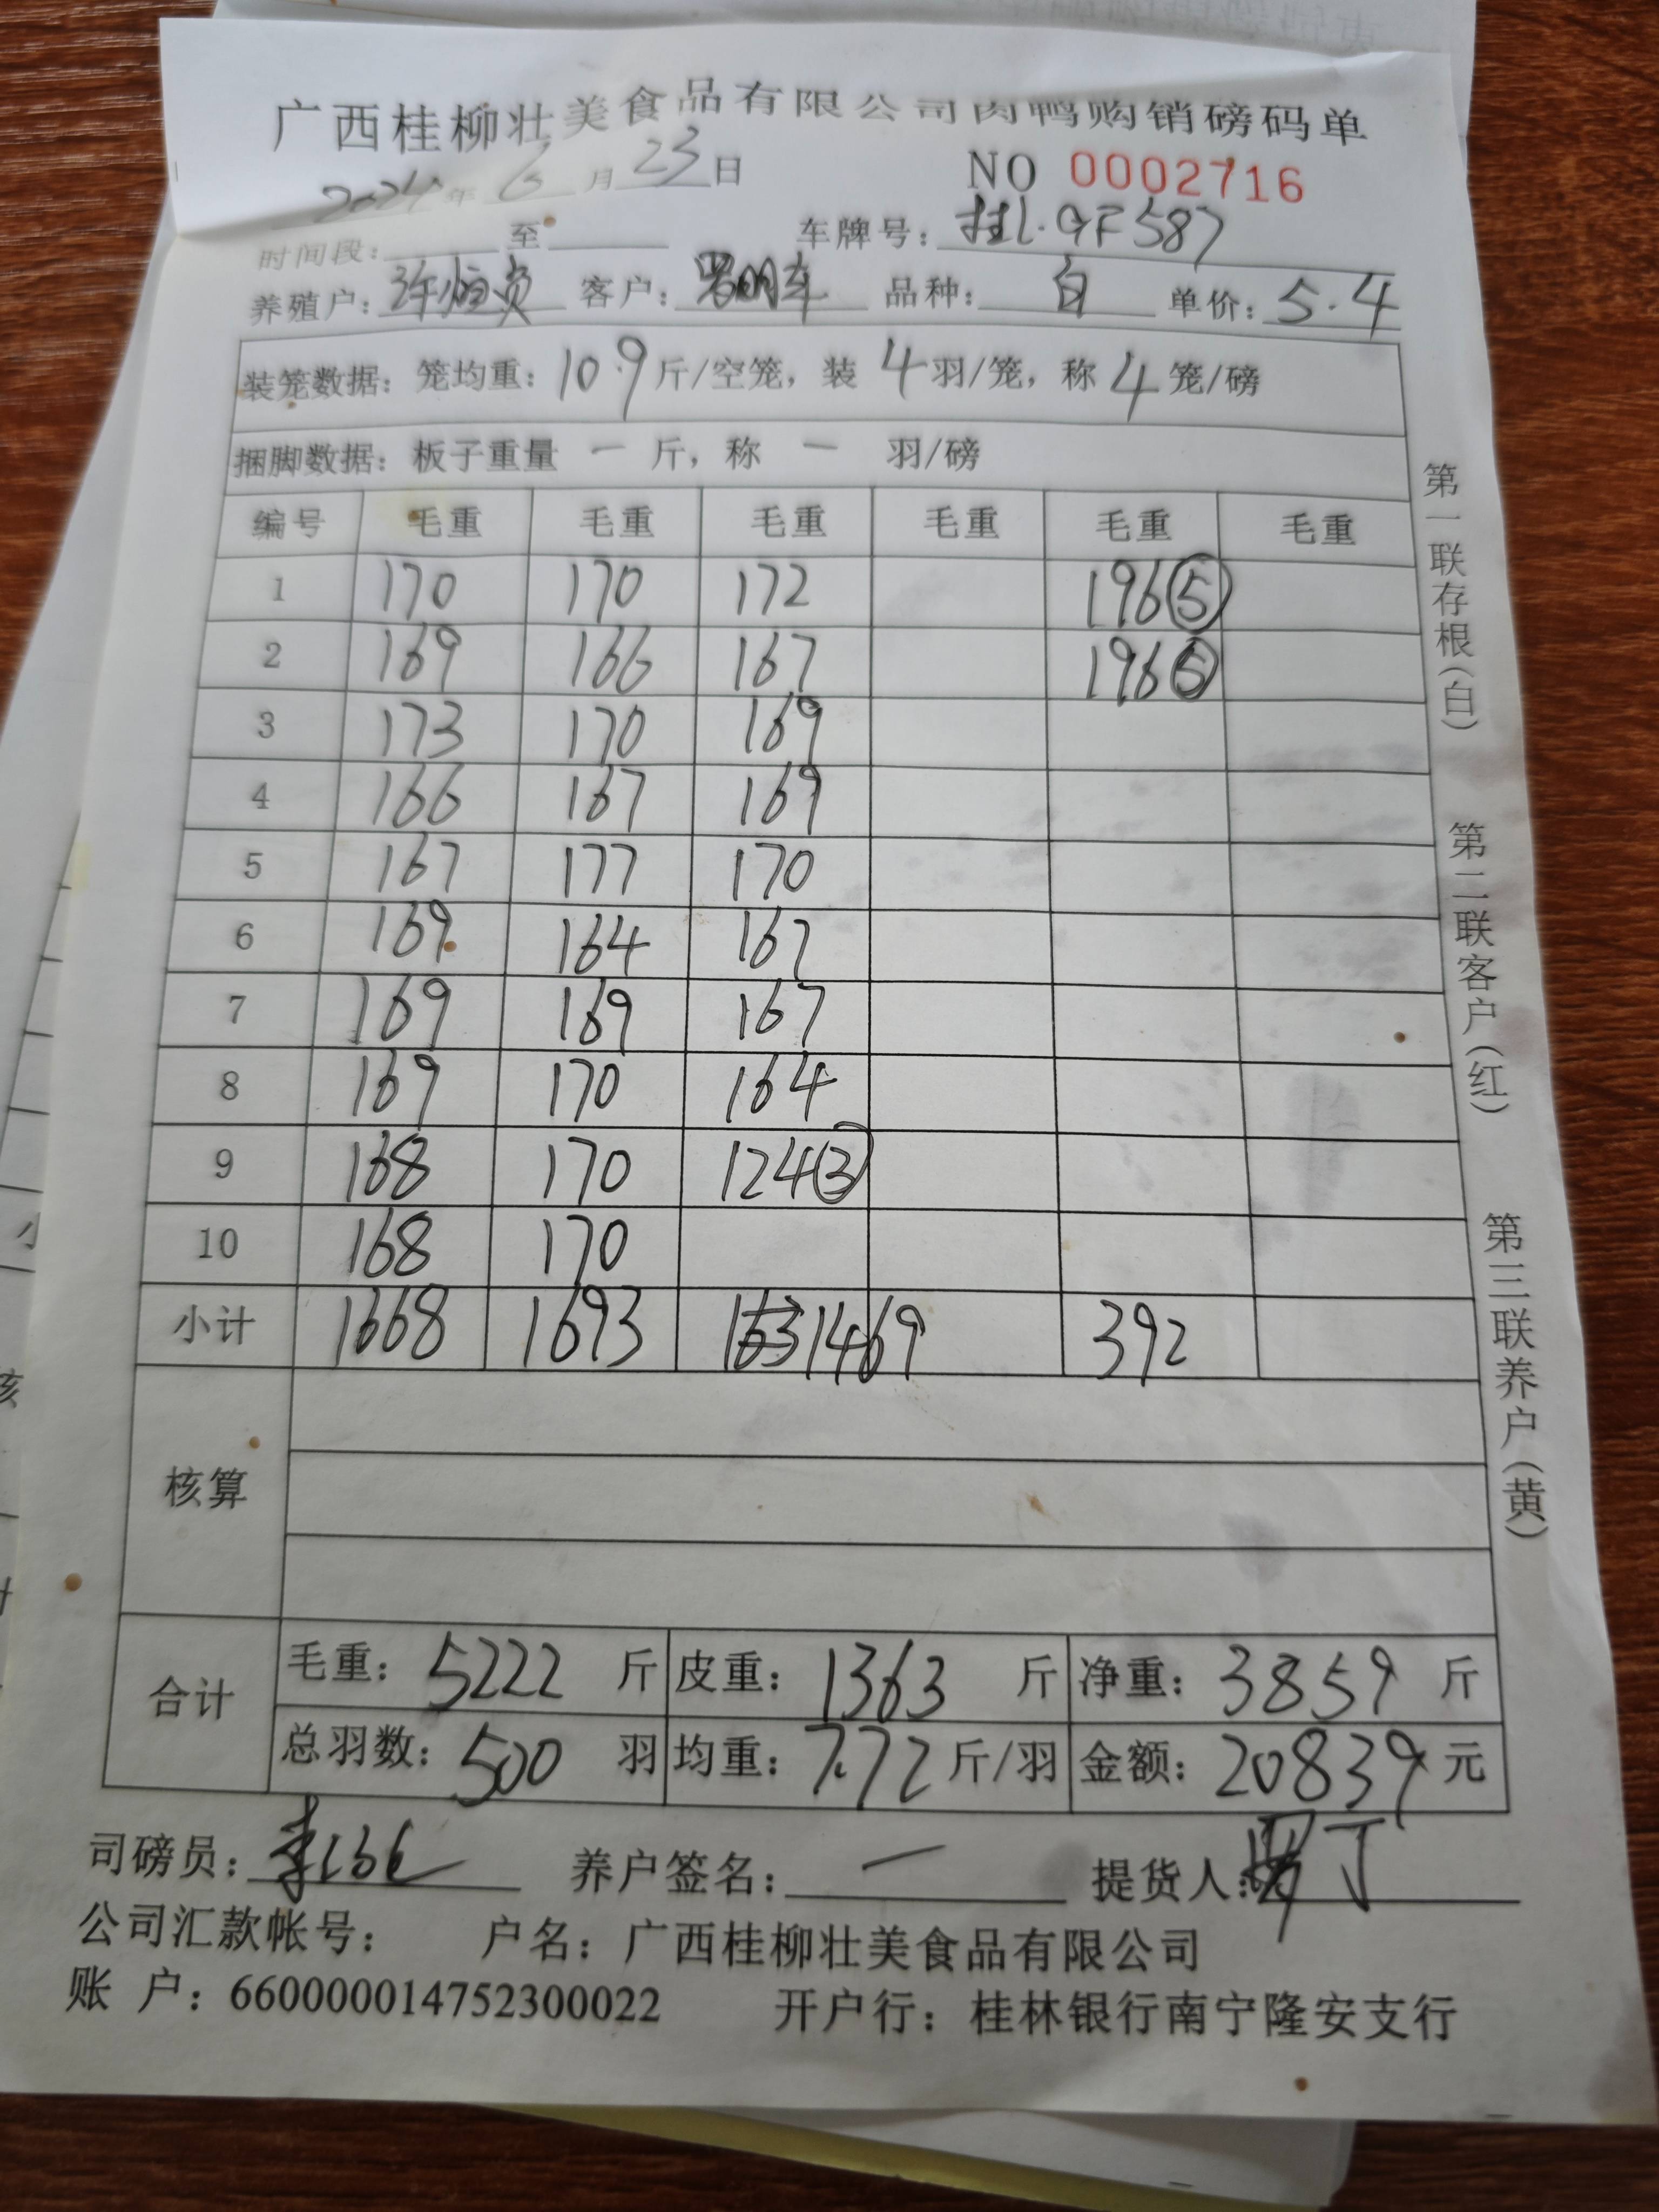 广西桂柳壮美食品有限公司肉鸭购销磅码单
2024年 6 月 23 日 NO 0002716
时间段: 至 车牌号: 桂L·9F587
养殖户: 许恒贵 客户: 罗明车 品种: 白 单价: 5.4
装笼数据: 笼均重: 10.9 斤/空笼, 装 4 羽/笼, 称 4 笼/磅
捆脚数据: 板子重量 一 斤, 称 一 羽/磅
编号 毛重 毛重 毛重 毛重 毛重 毛重
1 170 170 172 196⑤
2 169 166 167 196⑤
3 173 170 169
4 166 167 169
5 167 177 170
6 169 164 167
7 169 169 167
8 169 170 164
9 168 170 124③
10 168 170
小计 1668 1693 1469 392
核算
合计 毛重: 5222 斤 皮重: 1363 斤 净重: 3859 斤
总羽数: 500 羽 均重: 7.72 斤/羽 金额: 20839 元
司磅员: 养户签名: 一 提货人:
公司汇款帐号: 户名: 广西桂柳壮美食品有限公司
账 户: 660000014752300022 开户行: 桂林银行南宁隆安支行
第一联存根(白)
第二联客户(红)
第三联养户(黄)